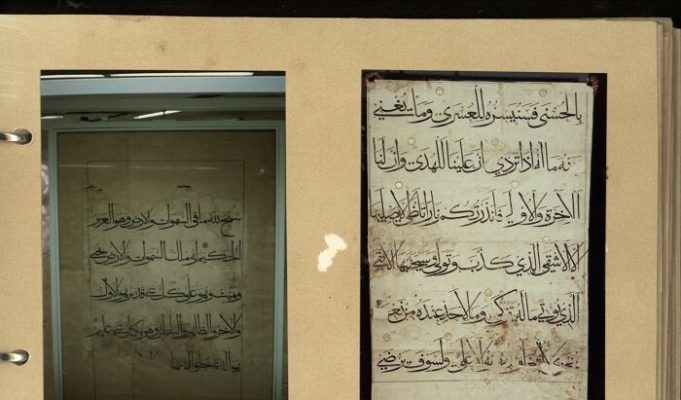 بالحسنى فسنيسره للعسرى وما يغني
عنه ماله اذا تردى ان علينا للهدى وان لنا
للاخرة والاولى فانذرتكم نارا تلظى لا يصليها
الا الاشقى الذي كذب وتولى وسيجنبها الاتقى
الذي يوتي ماله يتزكى وما لاحد عنده من نعمة
الاعلى ولسوف يرضى
سبح لله ما في السموات والارض وهو العزيز
الحكيم له ملك السموات والارض يحيي
ويميت وهو على كل شيء قدير هو الاول
والاخر والظاهر والباطن وهو بكل شيء عليم
هو الذي خلق